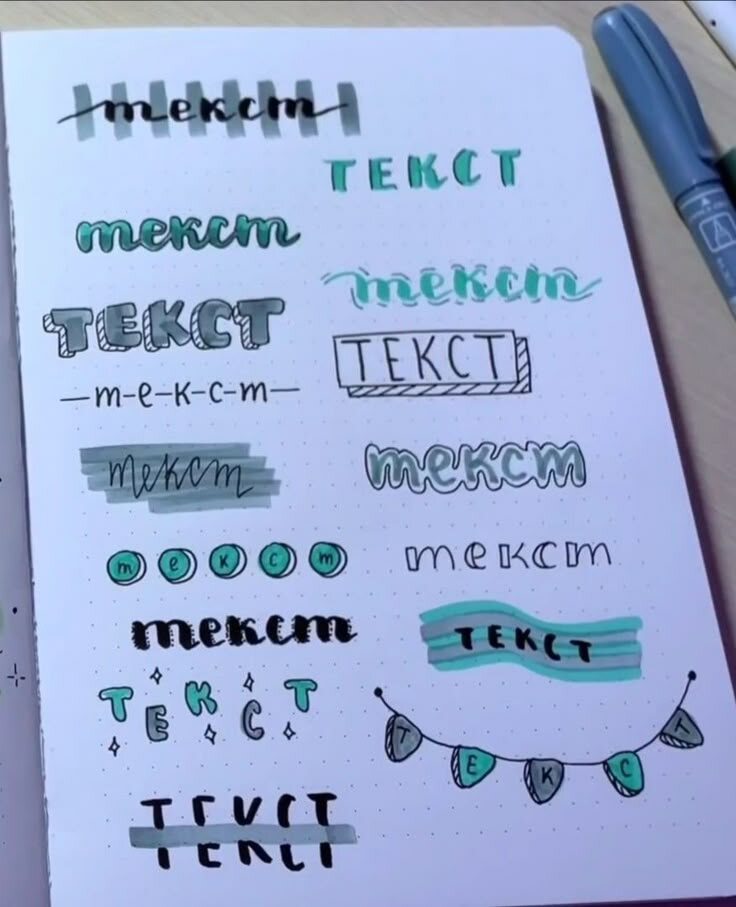 текст
ТЕКСТ
текст
текст
ТЕКСТ
ТЕКСТ
—т-е-к-с-т—
текст
текст
т е к с т
текст
текст
ТЕКСТ
ТЕКСТ
ТЕКСТ
ТЕКСТ